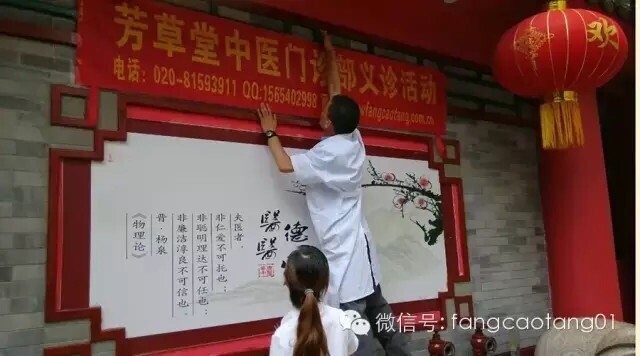 芳草堂中医门诊部义诊活动
电话：020-81593911 QQ:1565402998 fangcaotang.com.cn
欢
德
醫醫
夫医者，
非仁爱不可托也；
非聪明理达不可任也；
非廉洁淳良不可信也。
晋·杨泉
《物理论》
微信号: fangcaotang01